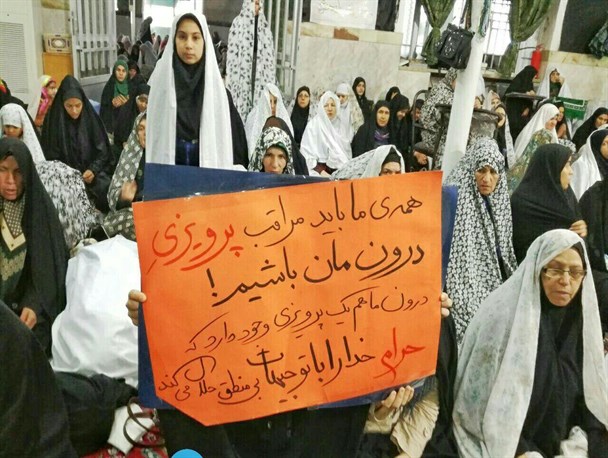 همه‌ی ما باید مراقب پرویزیِ
درون مان باشیم!
درون ما هم یک پرویزی وجود دارد که
حرام خدا را با توجیهات بی منطق حلال می کند